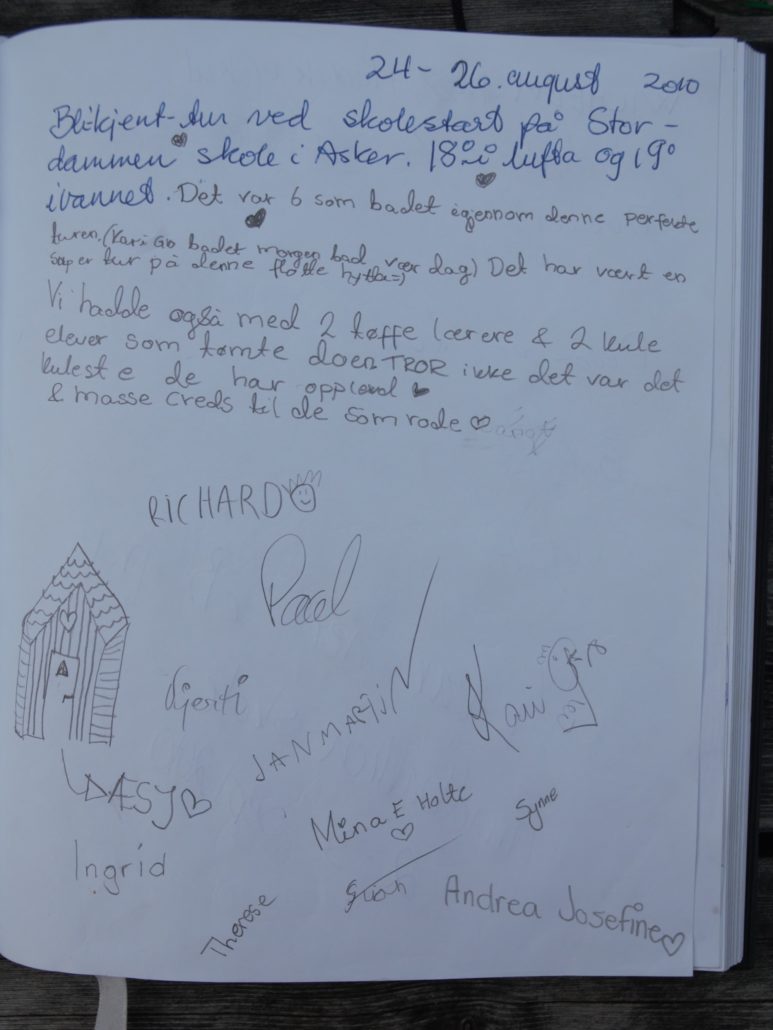 24- 26. august 2010
Blikjent-tur ved skolestart på Stor-
dammen skole i Asker. 18° i lufta og 19°
i vannet. Det var 6 som badet igjennom denne perfekte
turen. (Kari Go badet morgen bad vær dag) Det har vært en
super tur på denne flotte hytta=)
Vi hadde også med 2 tøffe lærere & 2 kule
elever som tømte doen TROR ikke det var det
kulest e de har opplevd
& masse creds til de som rode
RICHARD
Paal
JAN MARTIN
Kari
DÆSY
Mina E Holte
Synne
Ingrid
Therese
Andrea Josefine